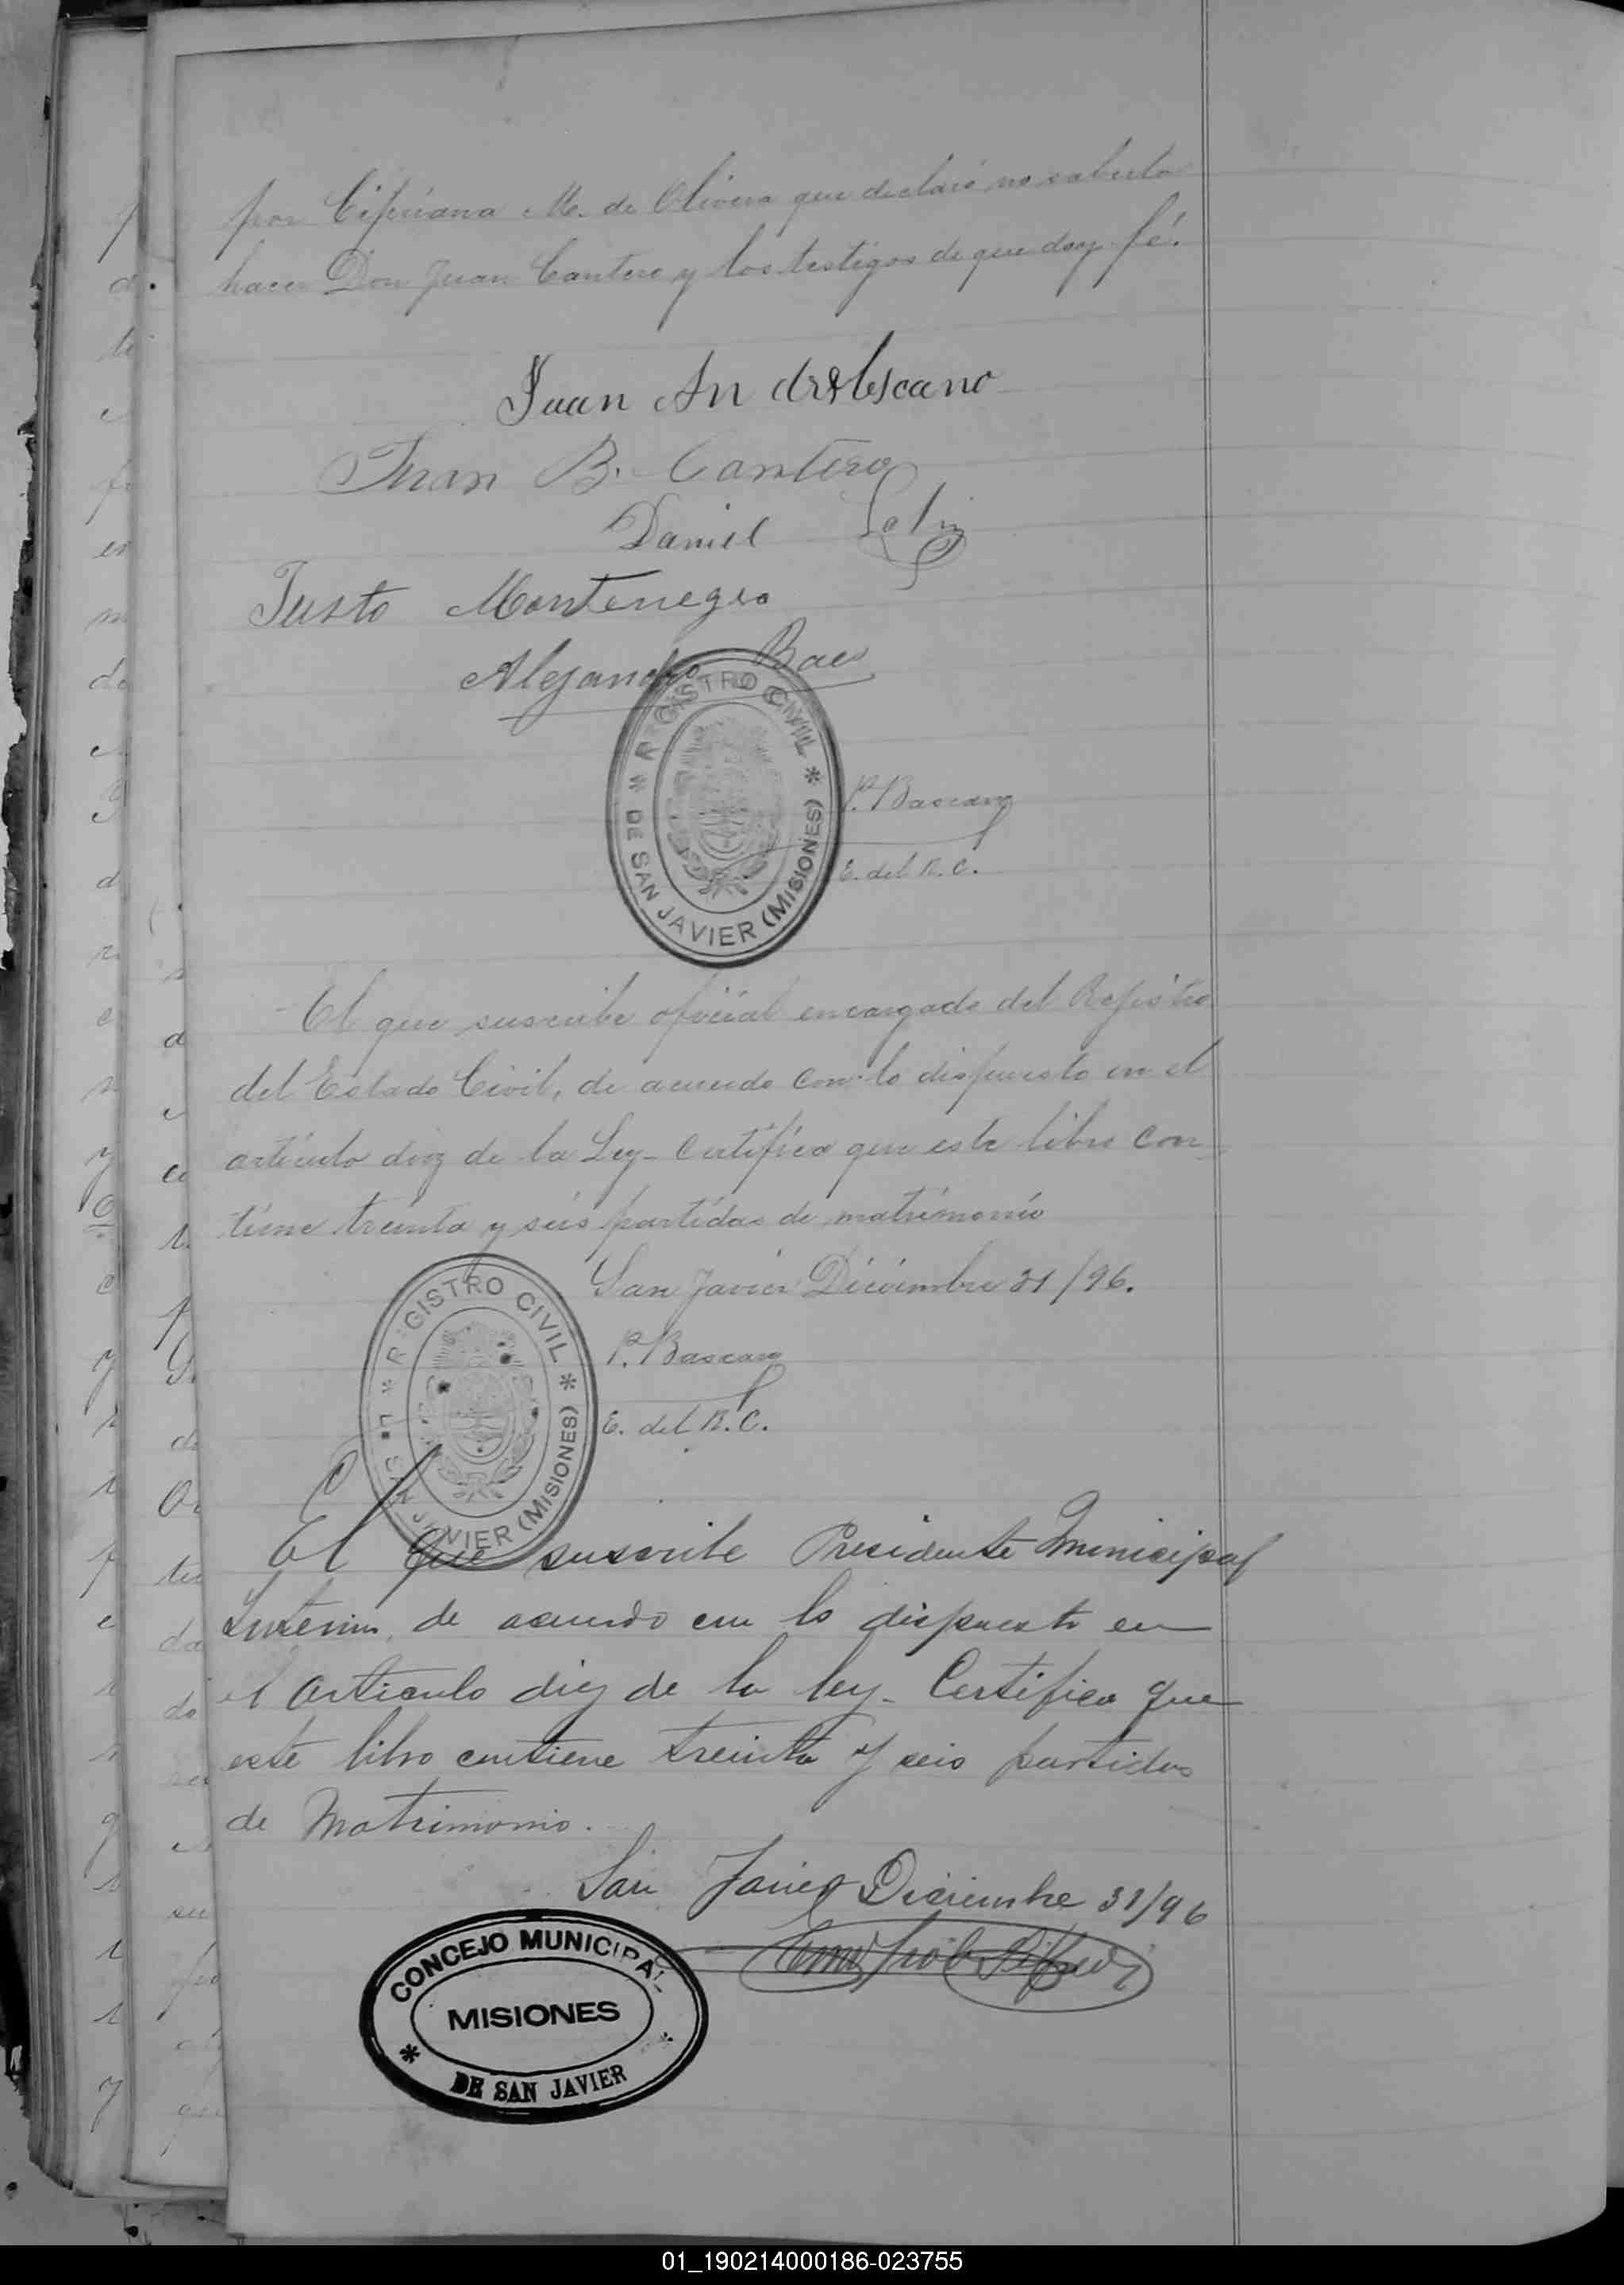 por Cipriana M. de Olivera que declaró no saberlo
hacer Don Juan Cantero y los testigos de que doy fé.
Juan An
Juan B. Cantero
Daniel
Justo Montenegro
Alejandro Baez
REGISTRO CIVIL
DE SAN JAVIER (MISIONES)
P. Bascary
E. del R. C.
El que suscribe oficial encargado del Registro
del Estado Civil, de acuerdo con lo dispuesto en el
artículo diez de la Ley - Certifico que este libro con-
tiene treinta y seis partidas de matrimonio
San Javier Diciembre 31/96.
REGISTRO CIVIL
SAN JAVIER (MISIONES)
P. Bascary
E. del R. C.
El que suscribe Presidente Municipal
Interino, de acuerdo con lo dispuesto en
el articulo diez de la ley - Certifico que
este libro contiene treinta y seis partidas
de Matrimonio.
San Javier Diciembre 31/96
CONCEJO MUNICIPAL
MISIONES
DE SAN JAVIER
01_190214000186-023755